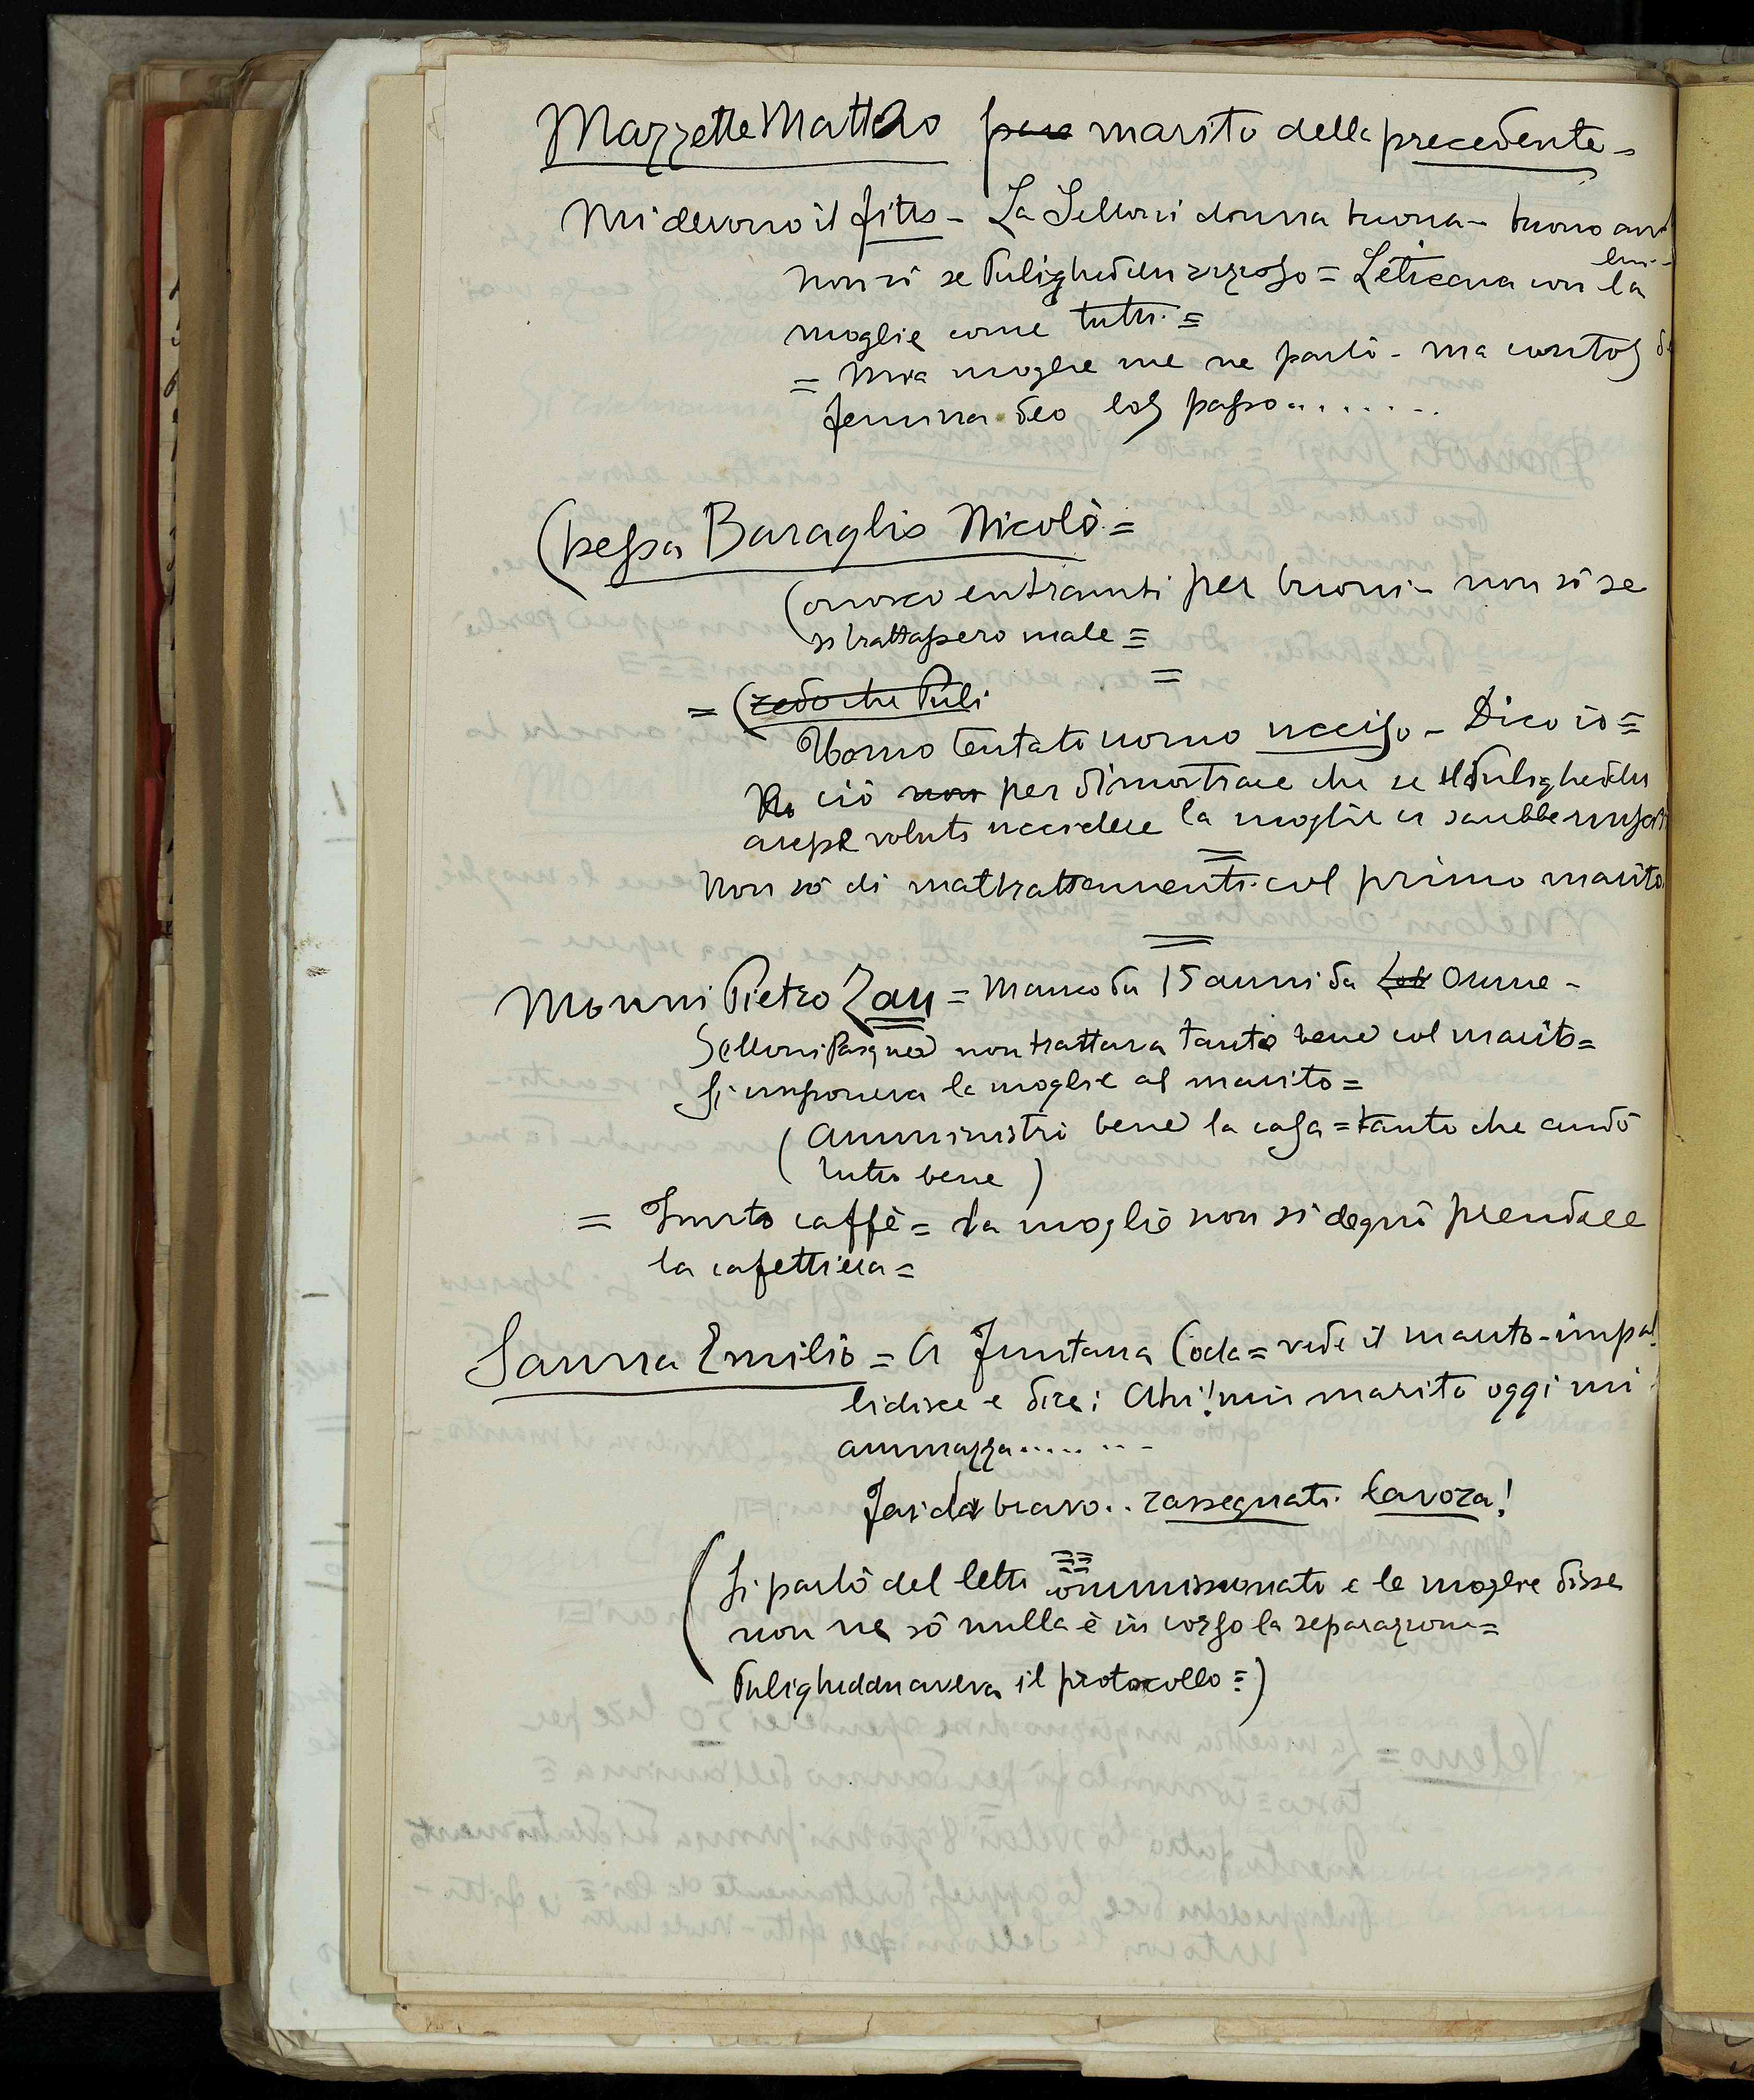 Mazzette Matteo marito della precedente -
Mi devono il fitto - La Selloni donna buona - buono an
lui -
non sò se Puligheddu rissoso = Leticava con la
moglie come tutti. =
= Mia moglie me ne parlò - ma contos de
femina deo los passo........
Chessa Baraglio Nicolò. =
Conosco entrambi per buoni - non sò se
si trattassero male =
= Credo che Puli
Uomo tentato uomo ucciso - Dico io =
ciò non per dimostrare che se il Puligheddu
avesse voluto uccidere la moglie ci sarebbe
Non sò di maltrattamenti col primo marito
Monni Pietro Zau = Manco da 15 anni da Orune -
Selloni Pasqua non trattava tanto bene col marito =
Si imponeva la moglie al marito =
(Amministrò bene la casa = tanto che andò
tutto bene)
= Furto caffè = la moglie non si degnò prendere
la caffettiera =
Sanna Emilio = A Funtana Coda = vede il marito - impal
lidisce e dice: Ahi! mio marito oggi mi
ammazza........
bravo.. rassegnati. lavora!
(Si parlò del letto commissionato e la moglie disse
non ne sò nulla è in corso la separazione =
Puligheddu aveva il protocollo =)